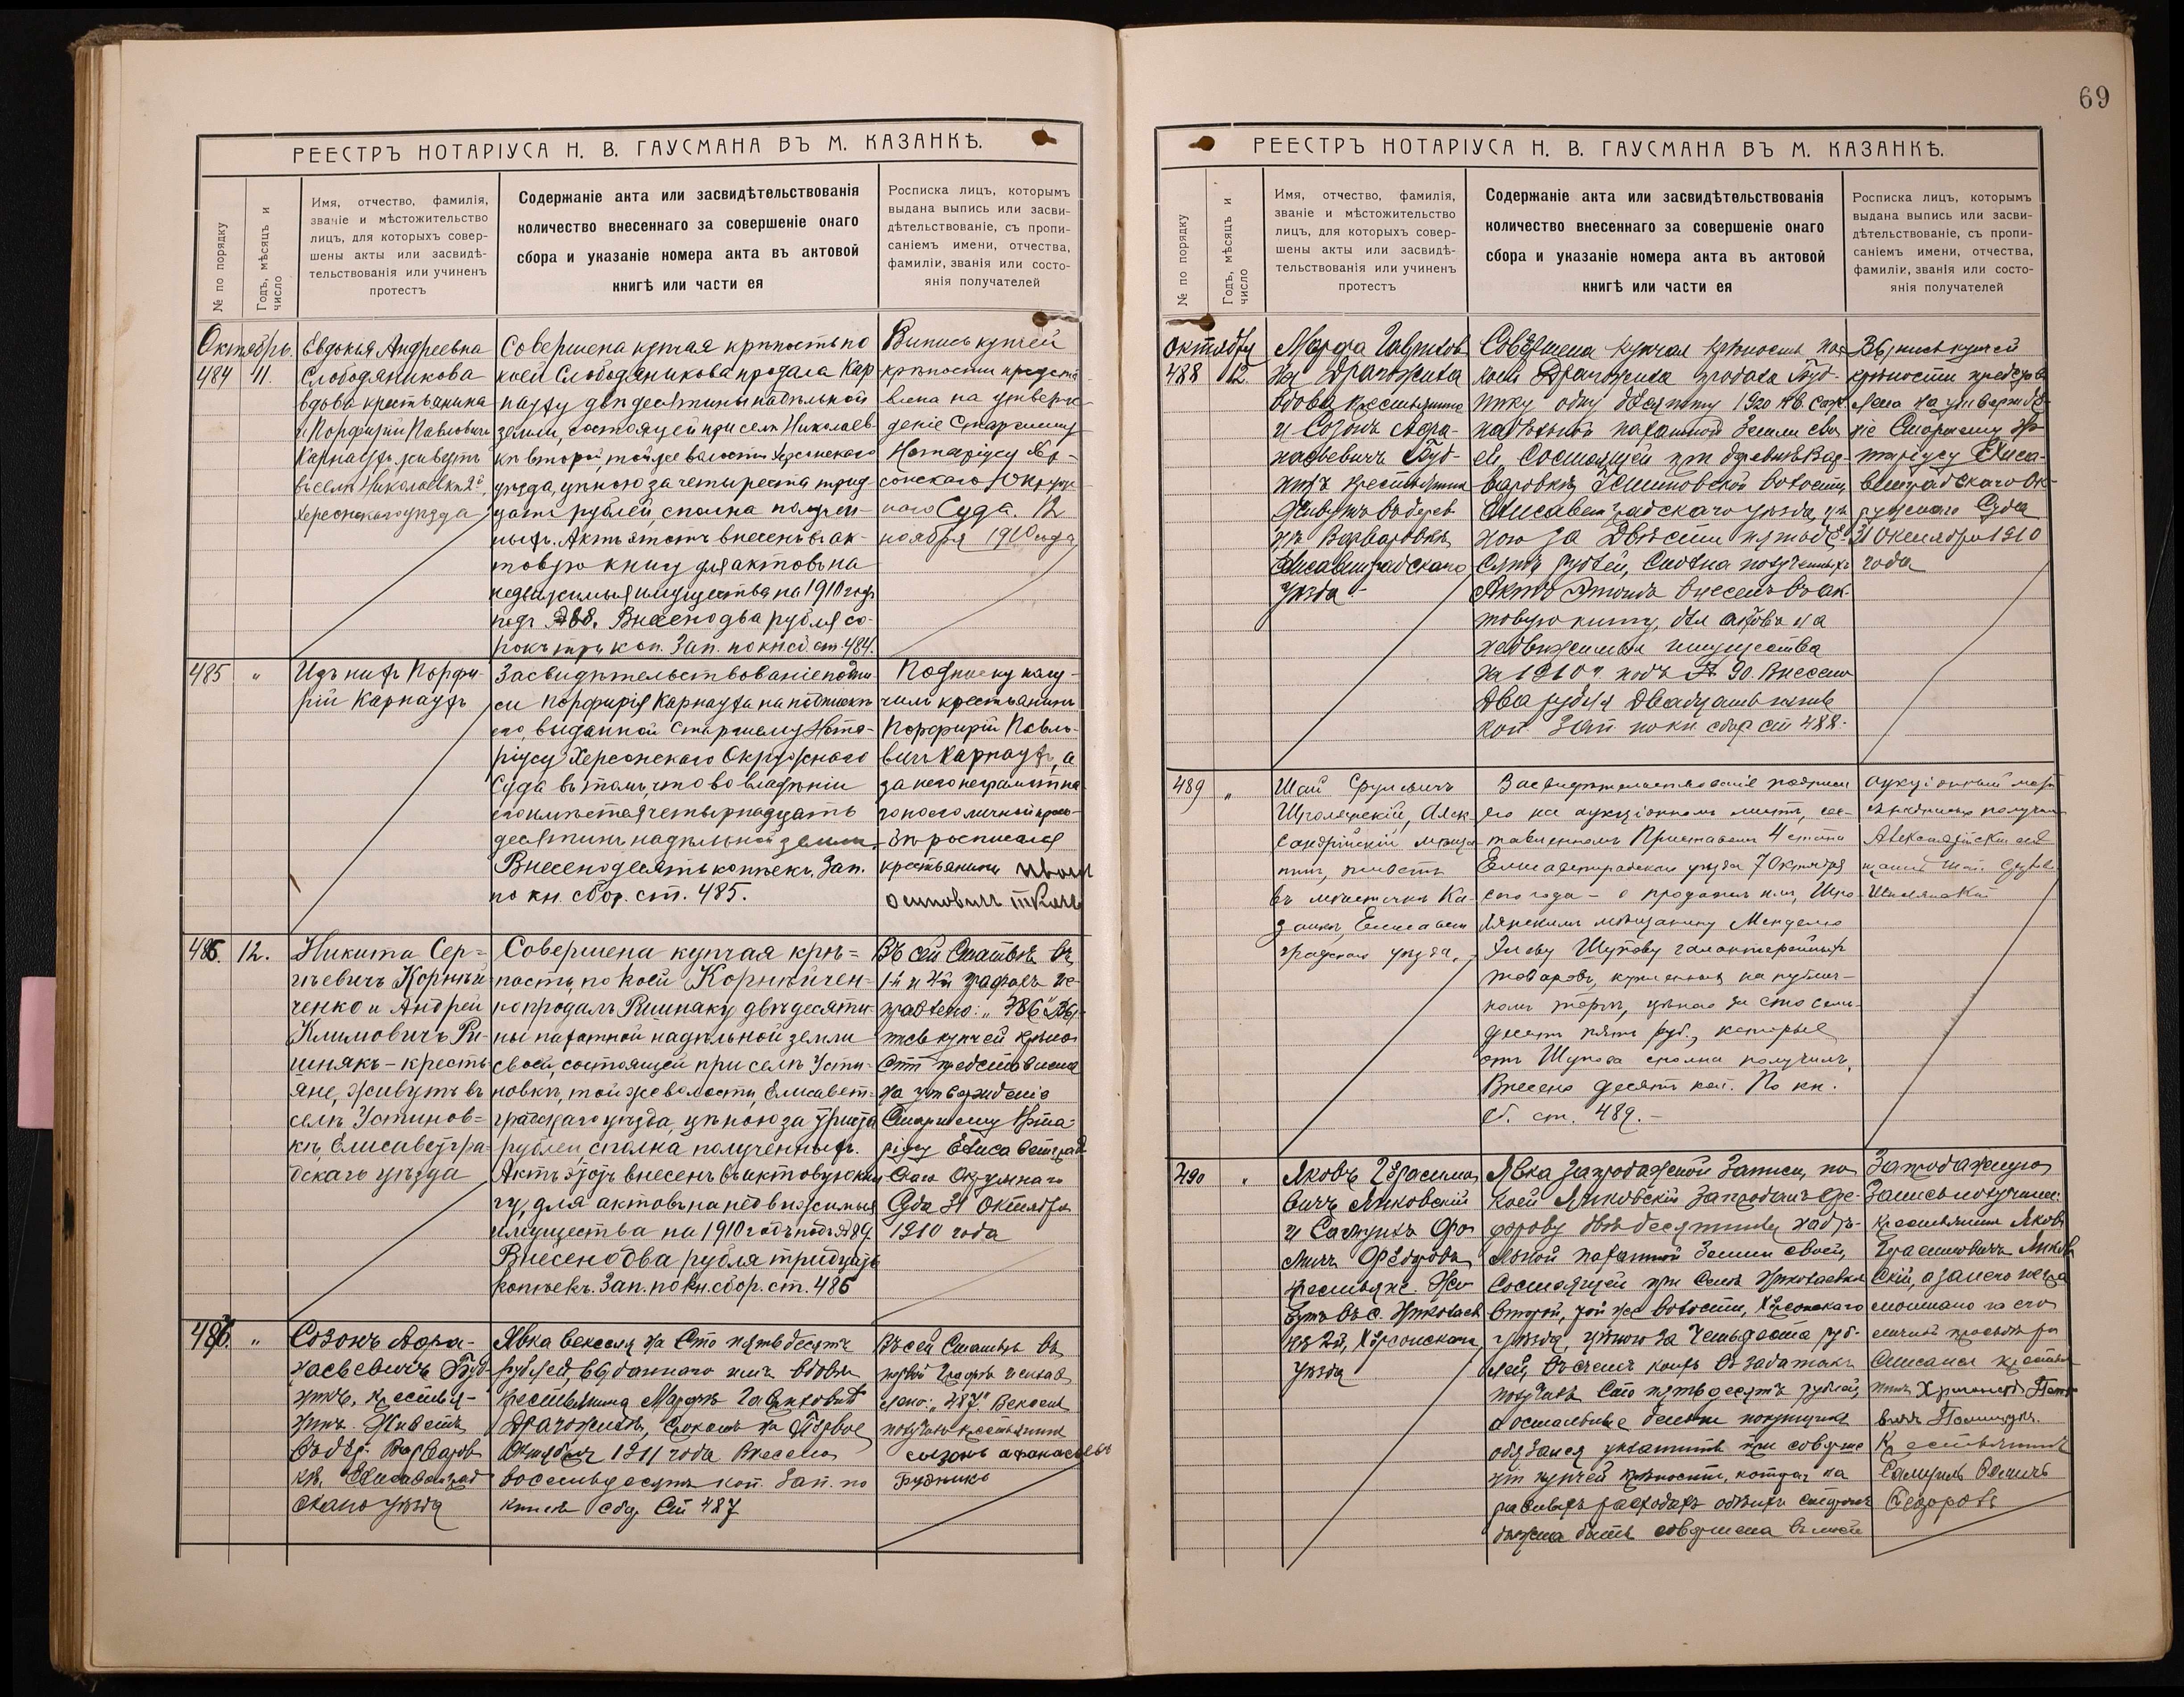 РЕЕСТРЪ НОТАРІУСА Н. В. ГАУСМАНА ВЪ М. КАЗАНКѢ.
№ по порядку
Годъ, мѣсяцъ и
число
Имя, отчество, фамилія,
званіе и мѣстожительство
лицъ, для которыхъ совер-
шены акты или засвидѣ-
тельствованія или учиненъ
протестъ
Содержаніе акта или засвидѣтельствованія
количество внесеннаго за совершеніе онаго
сбора и указаніе номера акта въ актовой
книгѣ или части ея
Росписка лицъ, которымъ
выдана выпись или засви-
дѣтельствованіе, съ пропи-
саніемъ имени, отчества,
фамиліи, званія или состо-
янія получателей
Октябрь.
484
11.
Евдокія Андреевна
Слободяникова
вдова крестьянина
и Порфирій Павловичъ
Карнаухъ живутъ
въ селѣ Николаевкѣ 2й,
Херсонскаго уѣзда
Совершена купчая крѣпость по
коей Слободяникова продала Кар
науху двѣ десятины надѣльной
земли, состоящей при селѣ Николаев-
кѣ второй, той же волости Херсонскаго
уѣзда, цѣною за четыреста трид-
цать рублей, сполна получен-
ныхъ. Актъ этотъ внесенъ въ ак-
товую книгу для актовъ на
недвижимыя имущества на 1910 годъ
подъ № 88. Внесено два рубля со-
рокъ три коп. Зап. по кн. сб. ст. 484.
Выпись купчей
крѣпости предста
влена на утверж-
деніе Старшему
Нотаріусу Хер-
сонскаго Окруж
наго Суда. 12
ноября 1910 года
485
"
Изъ нихъ Порфи-
рій Карнаухъ
Засвидѣтельствованіе подпи
си Порфирія Карнауха на подпискѣ
его, выданной Старшему Нота-
ріусу Херсонскаго Окружнаго
Суда въ томъ, что во владѣніи
его имѣется четырнадцать
десятинъ надѣльной земли.
Внесено десять копѣекъ. Зап.
по кн. сбор. ст. 485.
Подписку полу-
чилъ крестьянинъ
Порфирій Павло-
вичъ Карнаухъ, а
за него неграмотна
го по его личной прось
бѣ росписался
крестьянинъ Иванъ
Осиповичъ Ткачъ
486.
12.
Никита Сер-
гѣевичъ Корнѣй
ченко и Андрей
Климовичъ Ри-
шнякъ – кресть
яне, живутъ въ
селѣ Устинов-
кѣ, Елисаветгра-
дскаго уѣзда
Совершена купчая крѣ-
пость, по коей Корнѣйчен-
ко продалъ Ришняку двѣ десяти-
ны пахатной надѣльной земли
своей, состоящей при селѣ Усти-
новкѣ, той же волости, Елисавет-
градскаго уѣзда, цѣною за триста
рублей, сполна полученныхъ.
Актъ этотъ внесенъ въ актовую кни
гу, для актовъ на недвижимыя
имущества на 1910 годъ подъ № 89.
Внесено два рубля тридцать
копѣекъ. Зап. по кн. сбор. ст. 486
Въ сей Статьѣ въ
1й и 4й графахъ ис-
правлено: "486" Вы-
пись купчей крѣпо
сти представлена
на утвержденіе
Старшему Нота-
ріусу Елисаветград
скаго Окружнаго
Суда 31 Октября
1910 года
486.
"
Созонъ Афа-
насьевичъ Буд-
никъ, крестья-
нинъ. Живетъ
въ дер. Варваров
кѣ, Елисаветград
скаго уѣзда
Явка векселя на Сто пятьдесятъ
рублей, выданнаго имъ вдовѣ
крестьянина Марфѣ Гавриловнѣ
Драгожилѣ, срокомъ на Первое
Октября 1911 года Внесено
восемьдесятъ коп. Зап. по
книгѣ сбор. Ст 487
Въ сей Статьѣ въ
первой графѣ исправ
лено: "487" Вексель
получилъ крестьянинъ
созонъ афанасьевъ
Будникъ
69
РЕЕСТРЪ НОТАРІУСА Н. В. ГАУСМАНА ВЪ М. КАЗАНКѢ.
№ по порядку
Годъ, мѣсяцъ и
число
Имя, отчество, фамилія,
званіе и мѣстожительство
лицъ, для которыхъ совер-
шены акты или засвидѣ-
тельствованія или учиненъ
протестъ
Содержаніе акта или засвидѣтельствованія
количество внесеннаго за совершеніе онаго
сбора и указаніе номера акта въ актовой
книгѣ или части ея
Росписка лицъ, которымъ
выдана выпись или засви-
дѣтельствованіе, съ пропи-
саніемъ имени, отчества,
фамиліи, званія или состо-
янія получателей
Октября
488
12.
Марфа Гаврилов
на Драгожила
вдова крестьянина
и Созонъ Афа-
насьевичъ Буд-
никъ крестьянинъ
Живутъ въ дерев
нѣ Варваровкѣ,
Елисаветградскаго
уѣзда
Совершена купчая крѣпость по
коей Драгожила продала Буд-
нику одну десятину 1920 кв. саж.
надѣльной пахатной земли сво
ей, состоящей при деревнѣ Вар-
варовкѣ, Устиновской волости,
Елисаветградскаго уѣзда, цѣ
ною за Двѣсти пятьде
сятъ рублей, сполна полученныхъ
Актъ этотъ внесенъ въ ак-
товую книгу, для актовъ на
недвижимыя имущества
на 1910 г. подъ № 90. Внесено
два рубля двадцать пять
коп. Зап. по кн. сбор. ст 488.
Выпись купчей
крѣпости представ
лена на утвержде
ніе Старшему Но
таріусу Елиса-
ветградскаго Ок-
ружнаго Суда
31 Октября 1910
года
489
"
Шая Срулевичъ
Шполянскій, Алек-
сандрійскій мѣща
нинъ, живетъ
въ мѣстечкѣ Ка-
занкѣ, Елисавет
градскаго уѣзда.
Засвидѣтельствованіе подписи
его на аукціонномъ листѣ, сос-
тавленномъ Приставомъ 4 стана
Елисаветградскаго уѣзда 7 Октября
сего года – о продажѣ имъ, Шпо
лянскимъ мѣщанину Менделю
Шулову галантерейныхъ
товаровъ, купленныхъ на публич-
номъ торгѣ, цѣною за сто семь-
десятъ пять руб., которые
отъ Шулова сполна получилъ.
Внесено десять коп. По кн.
сб. ст. 489.
Аукціонный листъ
490
"
Яковъ Герасимо
вичъ Янковскій
и Самуилъ Фо
мичъ Федоровъ
крестьяне. Жи
вутъ въ с. Николаев
кѣ 2й, Херсонскаго
уѣзда
Явка запродажной записи, по
коей Янковскій запродалъ Фе-
дорову двѣ десятины надѣ-
льной пахатной земли своей,
состоящей при селѣ Николаевкѣ
второй, той же волости, Херсонскаго
уѣзда, цѣною за четыреста руб-
лей, въ счетъ коихъ въ задатокъ
получилъ Сто пятьдесятъ рублей,
а остальные деньги покупщикъ
обязался уплатить при соверше
ніи купчей крѣпости, которая на
расходахъ обѣихъ сторонъ
должна быть совершена
Запродажную
запись получили:
крестьянинъ Яковъ
Герасимовичъ Янков
скій, а за него негра
мотнаго по его
личной просьбѣ ро
списался крестья
нинъ
Крестьянинъ
Самуилъ Фомичъ
Федоровъ